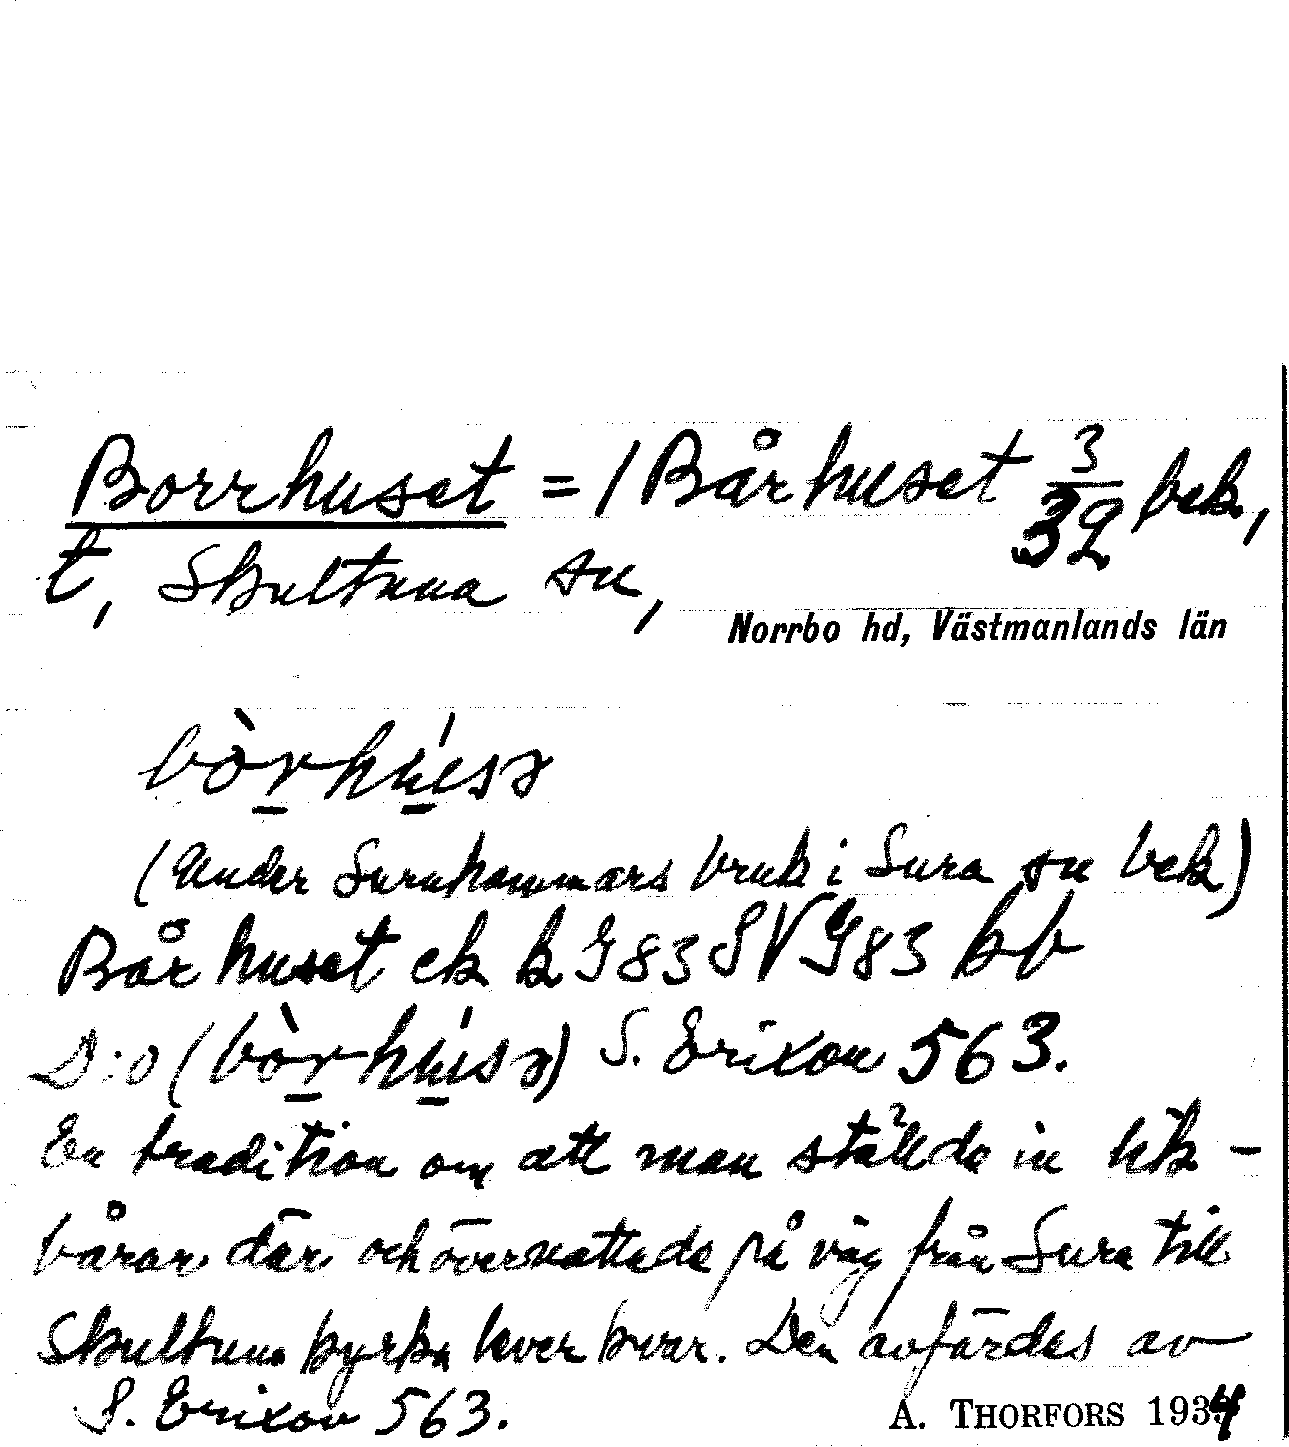 Borrhuset = / Bårhuset 3/32 bek,
t, Skultuna sn,
Norrbo hd, Västmanlands län
bòrhúsə
(Under Surahammars bruk i Sura sn bek)
Bårhuset ek k G83SV G83 bb
D:o (bòrhúsə) S. Erixon 563.
En tradition om att man ställde in lik-
bårar där och övernattade på väg från Sura till
Skultuna kyrka lever kvar. Den avfärdes av
S. Erixon 563.
A. THORFORS 1934